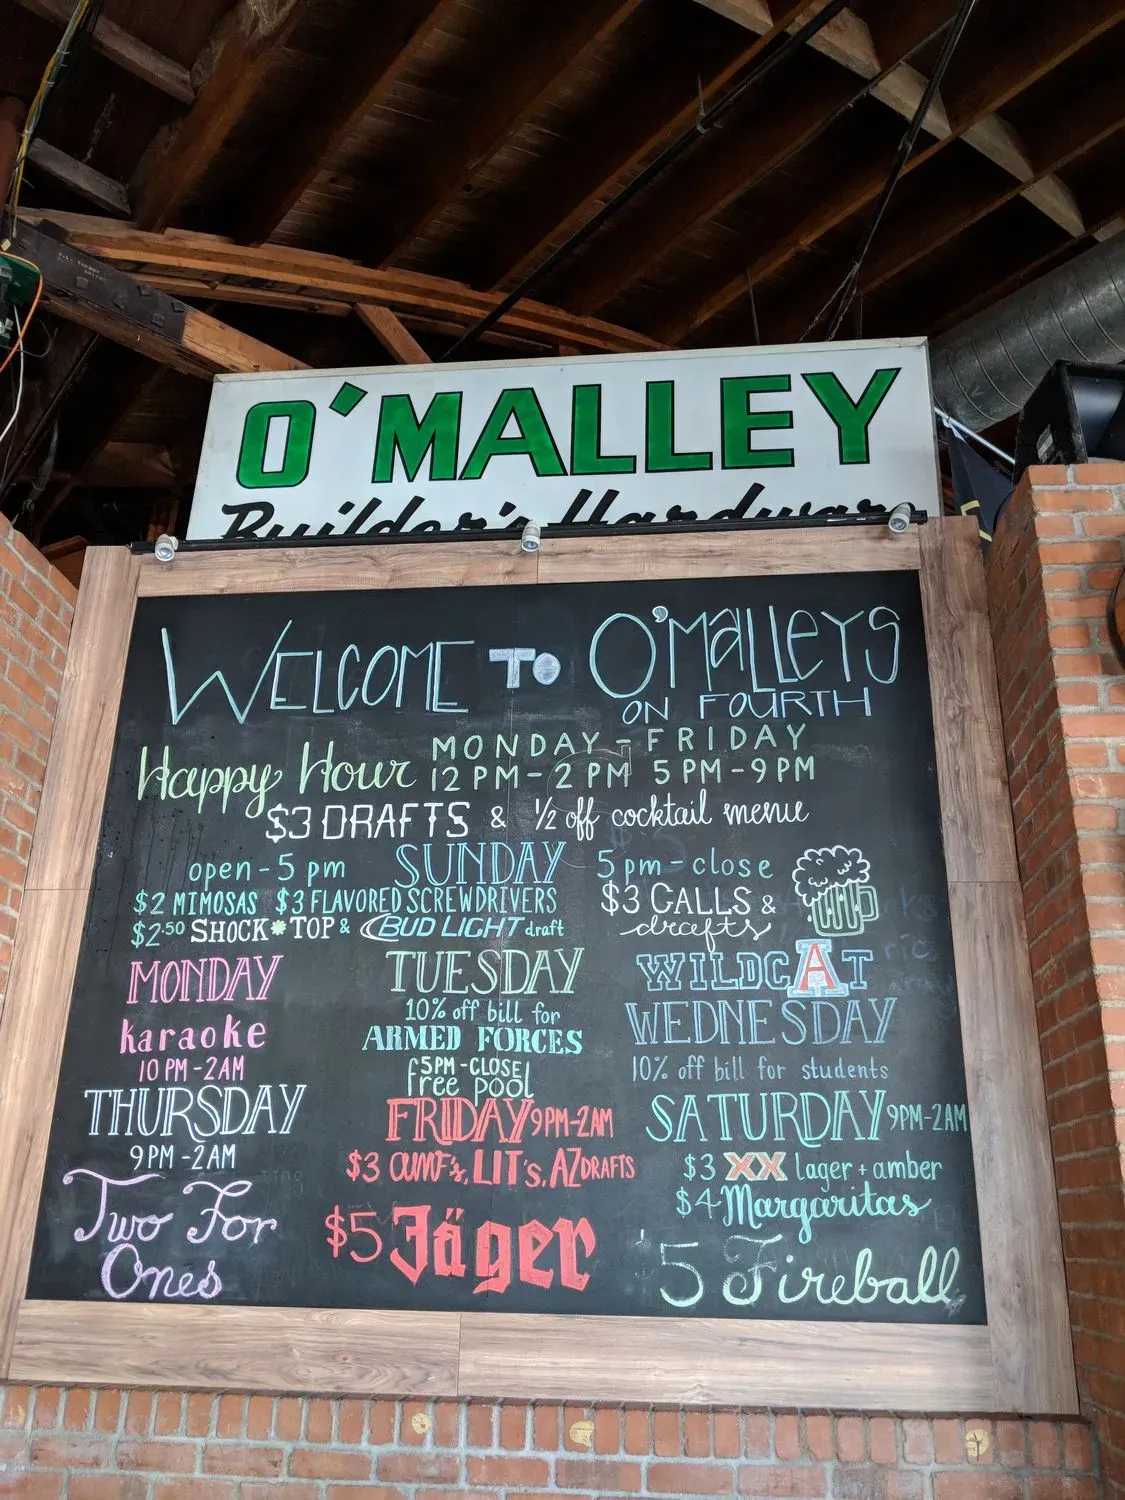 O'MALLEY
Builder's Hardware
WELCOME TO O'MALLEYS
ON FOURTH
Happy Hour MONDAY - FRIDAY
12 PM - 2 PM 5 PM - 9 PM
$3 DRAFTS & 1/2 off cocktail menu
open - 5 pm SUNDAY 5 pm - close
$2 MIMOSAS $3 FLAVORED SCREWDRIVERS
$2.50 SHOCK TOP & BUD LIGHT draft
$3 CALLS &
drafts
MONDAY
karaoke
10 PM - 2AM
TUESDAY
10% off bill for
ARMED FORCES
5PM - CLOSE
free pool
WILDCAT
WEDNESDAY
10% off bill for students
THURSDAY
9 PM - 2 AM
Two For
Ones
FRIDAY 9PM-2AM
$3 LIT's, AZ DRAFTS
$5 Jäger
SATURDAY 9PM-2AM
$3 XX lager + amber
$4 Margaritas
$5 Fireball